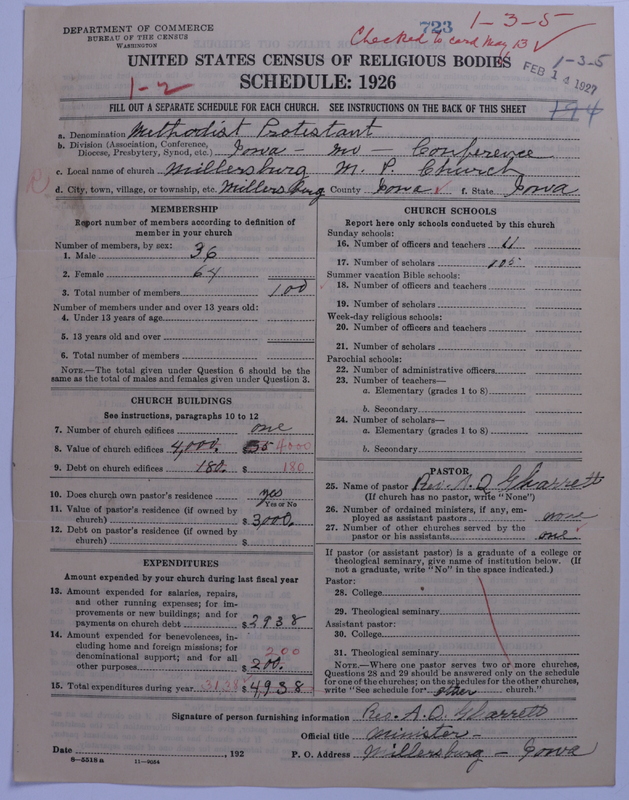 DEPARTMENT OF COMMERCE
BUREAU OF THE CENSUS
WASHINGTON
723
1-3-5
Checked to card May 13 ✓
1-3-5
FEB 14 1927
UNITED STATES CENSUS OF RELIGIOUS BODIES
1-2
SCHEDULE: 1926
FILL OUT A SEPARATE SCHEDULE FOR EACH CHURCH. SEE INSTRUCTIONS ON THE BACK OF THIS SHEET
194
a. Denomination Methodist Protestant
b. Division (Association, Conference,
Diocese, Presbytery, Synod, etc.) Iowa - Mo - Conference
c. Local name of church Millersburg M. P. Church
d. City, town, village, or township, etc. Millersburg County Iowa ✓ f. State Iowa
MEMBERSHIP
Report number of members according to definition of
member in your church
Number of members, by sex:
1. Male 36
2. Female 64
3. Total number of members 100
Number of members under and over 13 years old:
4. Under 13 years of age
5. 13 years old and over
6. Total number of members
NOTE.—The total given under Question 6 should be the
same as the total of males and females given under Question 3.
CHURCH BUILDINGS
See instructions, paragraphs 10 to 12
7. Number of church edifices one
8. Value of church edifices 4,000. 4000
9. Debt on church edifices 180. $ 180
10. Does church own pastor's residence yes
Yes or No
11. Value of pastor's residence (if owned by
church) $ 3,000.
12. Debt on pastor's residence (if owned by
church) $
EXPENDITURES
Amount expended by your church during last fiscal year
13. Amount expended for salaries, repairs,
and other running expenses; for im-
provements or new buildings; and for
payments on church debt $ 2938
14. Amount expended for benevolences, in-
cluding home and foreign missions; for
denominational support; and for all 200
other purposes $ 200.
15. Total expenditures during year 3138 $ 4938
CHURCH SCHOOLS
Report here only schools conducted by this church
Sunday schools:
16. Number of officers and teachers 11
17. Number of scholars 105
Summer vacation Bible schools:
18. Number of officers and teachers
19. Number of scholars
Week-day religious schools:
20. Number of officers and teachers
21. Number of scholars
Parochial schools:
22. Number of administrative officers
23. Number of teachers—
a. Elementary (grades 1 to 8)
b. Secondary
24. Number of scholars—
a. Elementary (grades 1 to 8)
b. Secondary
PASTOR
25. Name of pastor Rev. A. O. Gharrett
(If church has no pastor, write "None")
26. Number of ordained ministers, if any, em-
ployed as assistant pastors none
27. Number of other churches served by the
pastor or his assistants one
If pastor (or assistant pastor) is a graduate of a college or
theological seminary, give name of institution below. (If
not a graduate, write "No" in the space indicated.)
Pastor:
28. College
29. Theological seminary
Assistant pastor:
30. College
31. Theological seminary
NOTE.—Where one pastor serves two or more churches,
Questions 28 and 29 should be answered only on the schedule
for one of the churches; on the schedules for the other churches,
write "See schedule for other church."
Signature of person furnishing information Rev. A. O. Gharrett
Official title Minister-
Date , 192
P. O. Address Millersburg - Iowa
8-5518 a 11-9054